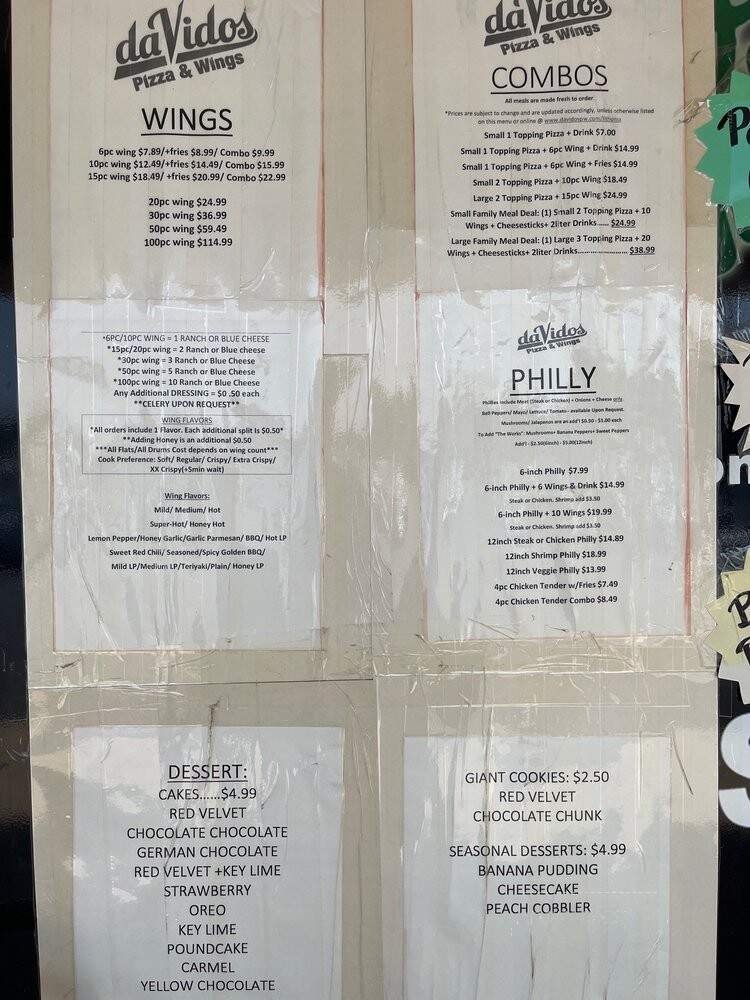 daVidos
Pizza & Wings
WINGS
6pc wing $7.89/+fries $8.99/ Combo $9.99
10pc wing $12.49/+fries $14.49/ Combo $15.99
15pc wing $18.49/ +fries $20.99/ Combo $22.99
20pc wing $24.99
30pc wing $36.99
50pc wing $59.49
100pc wing $114.99
*6PC/10PC WING = 1 RANCH OR BLUE CHEESE
*15pc/20pc wing = 2 Ranch or Blue cheese
*30pc wing = 3 Ranch or Blue Cheese
*50pc wing = 5 Ranch or Blue Cheese
*100pc wing = 10 Ranch or Blue Cheese
Any Additional DRESSING = $0 .50 each
**CELERY UPON REQUEST**
WING FLAVORS
*All orders include 1 Flavor. Each additional split Is $0.50*
**Adding Honey is an additional $0.50
***All Flats/All Drums Cost depends on wing count***
Cook Preference: Soft/ Regular/ Crispy/ Extra Crispy/
XX Crispy(+5min wait)
Wing Flavors:
Mild/ Medium/ Hot
Super-Hot/ Honey Hot
Lemon Pepper/Honey Garlic/Garlic Parmesan/ BBQ/ Hot LP
Sweet Red Chili/ Seasoned/Spicy Golden BBQ/
Mild LP/Medium LP/Teriyaki/Plain/ Honey LP
daVidos
Pizza & Wings
COMBOS
All meals are made fresh to order.
*Prices are subject to change and are updated accordingly, unless otherwise listed
on this menu or online @
Small 1 Topping Pizza + Drink $7.00
Small 1 Topping Pizza + 6pc Wing + Drink $14.99
Small 1 Topping Pizza + 6pc Wing + Fries $14.99
Small 2 Topping Pizza + 10pc Wing $18.49
Large 2 Topping Pizza + 15pc Wing $24.99
Small Family Meal Deal: (1) Small 2 Topping Pizza + 10
Wings + Cheesesticks+ 2liter Drinks..... $24.99
Large Family Meal Deal: (1) Large 3 Topping Pizza + 20
Wings + Cheesesticks+ 2liter Drinks........................ $38.99
daVidos
Pizza & Wings
PHILLY
Phillies include Meat (Steak or Chicken) + Onions + Cheese only
Bell Peppers/ Mayo/ Lettuce/ Tomato - available Upon Request.
Mushrooms/ Jalapenos are an add'l $0.50 - $1.00 each
To Add "The Works": Mushrooms+ Banana Peppers+ Sweet Peppers
Add'l - $2.50(6inch) - $5.00(12inch)
6-inch Philly $7.99
6-inch Philly + 6 Wings & Drink $14.99
Steak or Chicken. Shrimp add $3.50
6-inch Philly + 10 Wings $19.99
Steak or Chicken. Shrimp add $3.50
12inch Steak or Chicken Philly $14.89
12inch Shrimp Philly $18.99
12inch Veggie Philly $13.99
4pc Chicken Tender w/Fries $7.49
4pc Chicken Tender Combo $8.49
DESSERT:
CAKES......$4.99
RED VELVET
CHOCOLATE CHOCOLATE
GERMAN CHOCOLATE
RED VELVET +KEY LIME
STRAWBERRY
OREO
KEY LIME
POUNDCAKE
CARMEL
YELLOW CHOCOLATE
GIANT COOKIES: $2.50
RED VELVET
CHOCOLATE CHUNK
SEASONAL DESSERTS: $4.99
BANANA PUDDING
CHEESECAKE
PEACH COBBLER